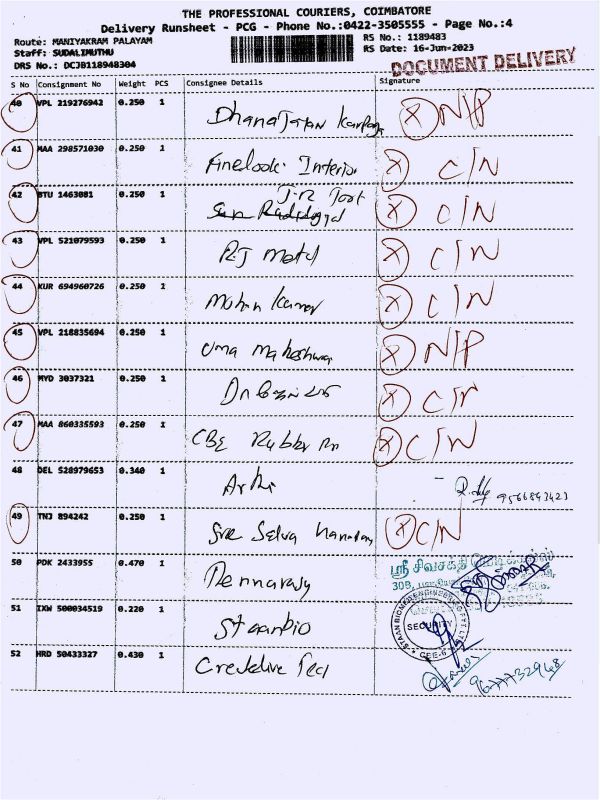 THE PROFESSIONAL COURIERS, COIMBATORE
Delivery Runsheet - PCG - Phone No.:0422-3505555 - Page No.:4
Route: MANIYAKRAM PALAYAM RS No.: 1189483
Staff: SUDALIMUTHU RS Date: 16-Jun-2023
DRS No.: DCJB118948304 DOCUMENT DELIVERY
S No Consignment No Weight PCS Consignee Details Signature
40 VPL 219276942 0.250 1 X N/P
41 MAA 298571030 0.250 1 Finelook Interior X C/N
42 BTU 1463081 0.250 1 X C/N
43 VPL 521079593 0.250 1 R.J Metal X C/N
44 KUR 694960726 0.250 1 Mohan Kumar X C/N
45 VPL 218835694 0.250 1 Uma Maheshwari X N/P
46 MYD 3037321 0.250 1 X C/N
47 MAA 860335593 0.250 1 CBE Rubber X C/N
48 DEL 528979653 0.340 1 9566893423
49 TNJ 894242 0.250 1 Sree Selva X C/N
50 PDK 2433955 0.470 1 ஸ்ரீ சிவசக்தி
51 IXW 500034519 0.220 1 Staanbio SECURITY
52 HRD 50433327 0.430 1 Creative Tec 9677732948